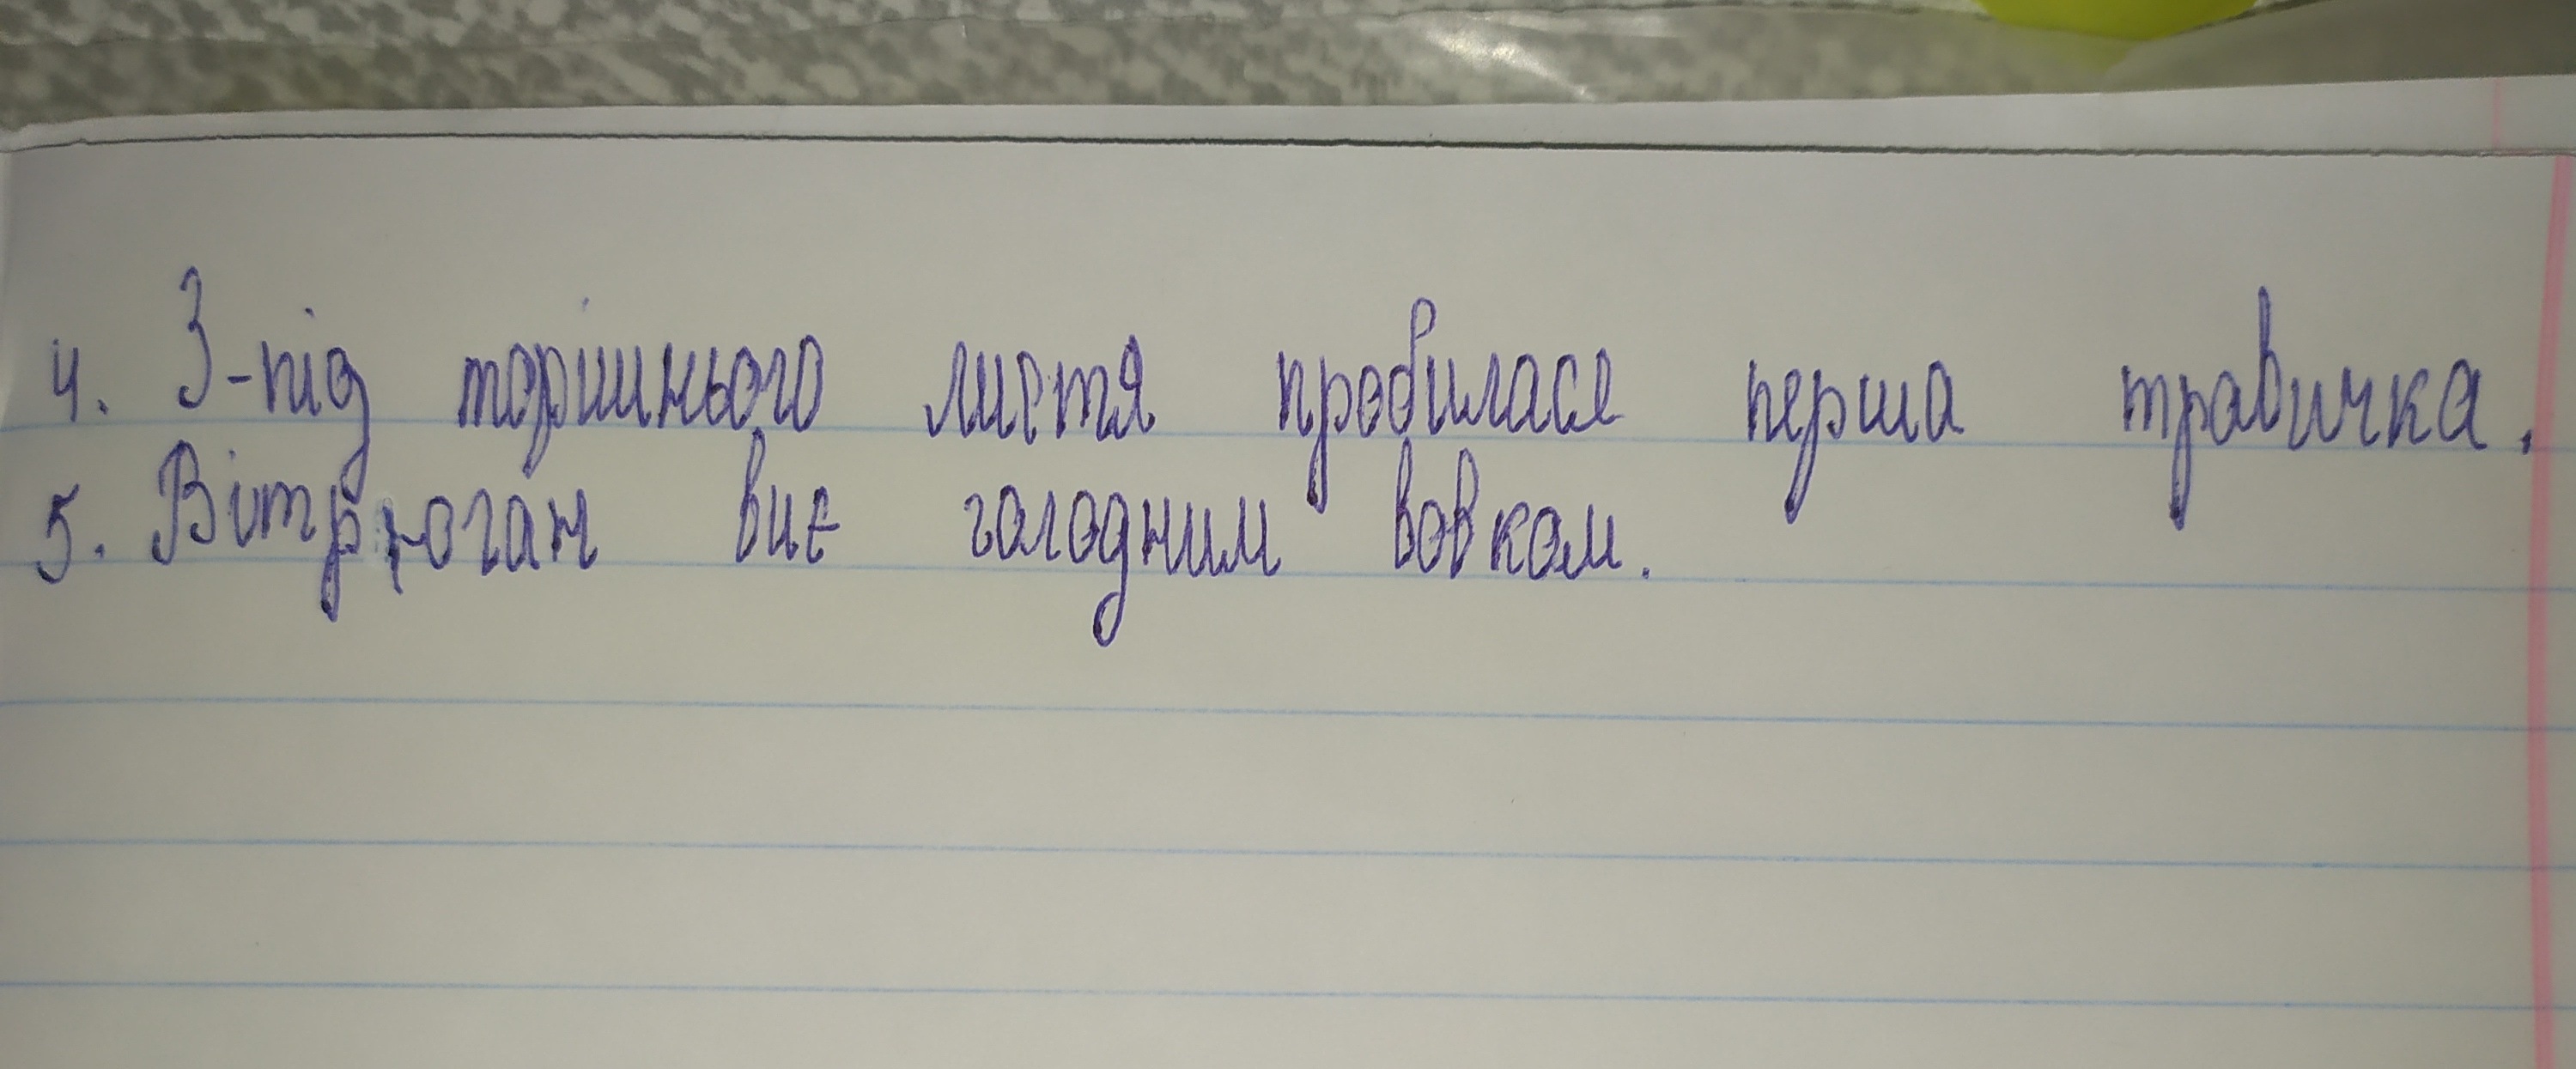 4. З-під торішнього листя пробилася перша травичка.
5. Вітрюган виє голодним вовком.